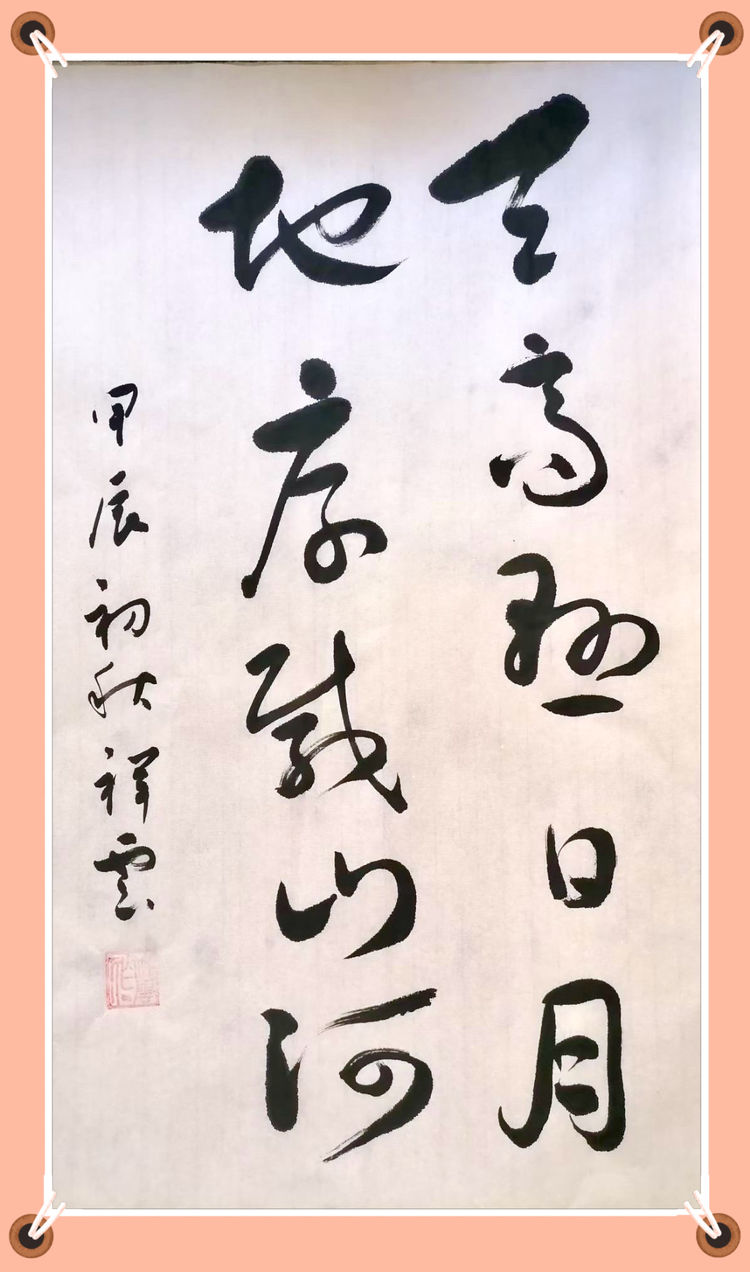 天高懸日月
地厚載山河
甲辰初秋祥雲